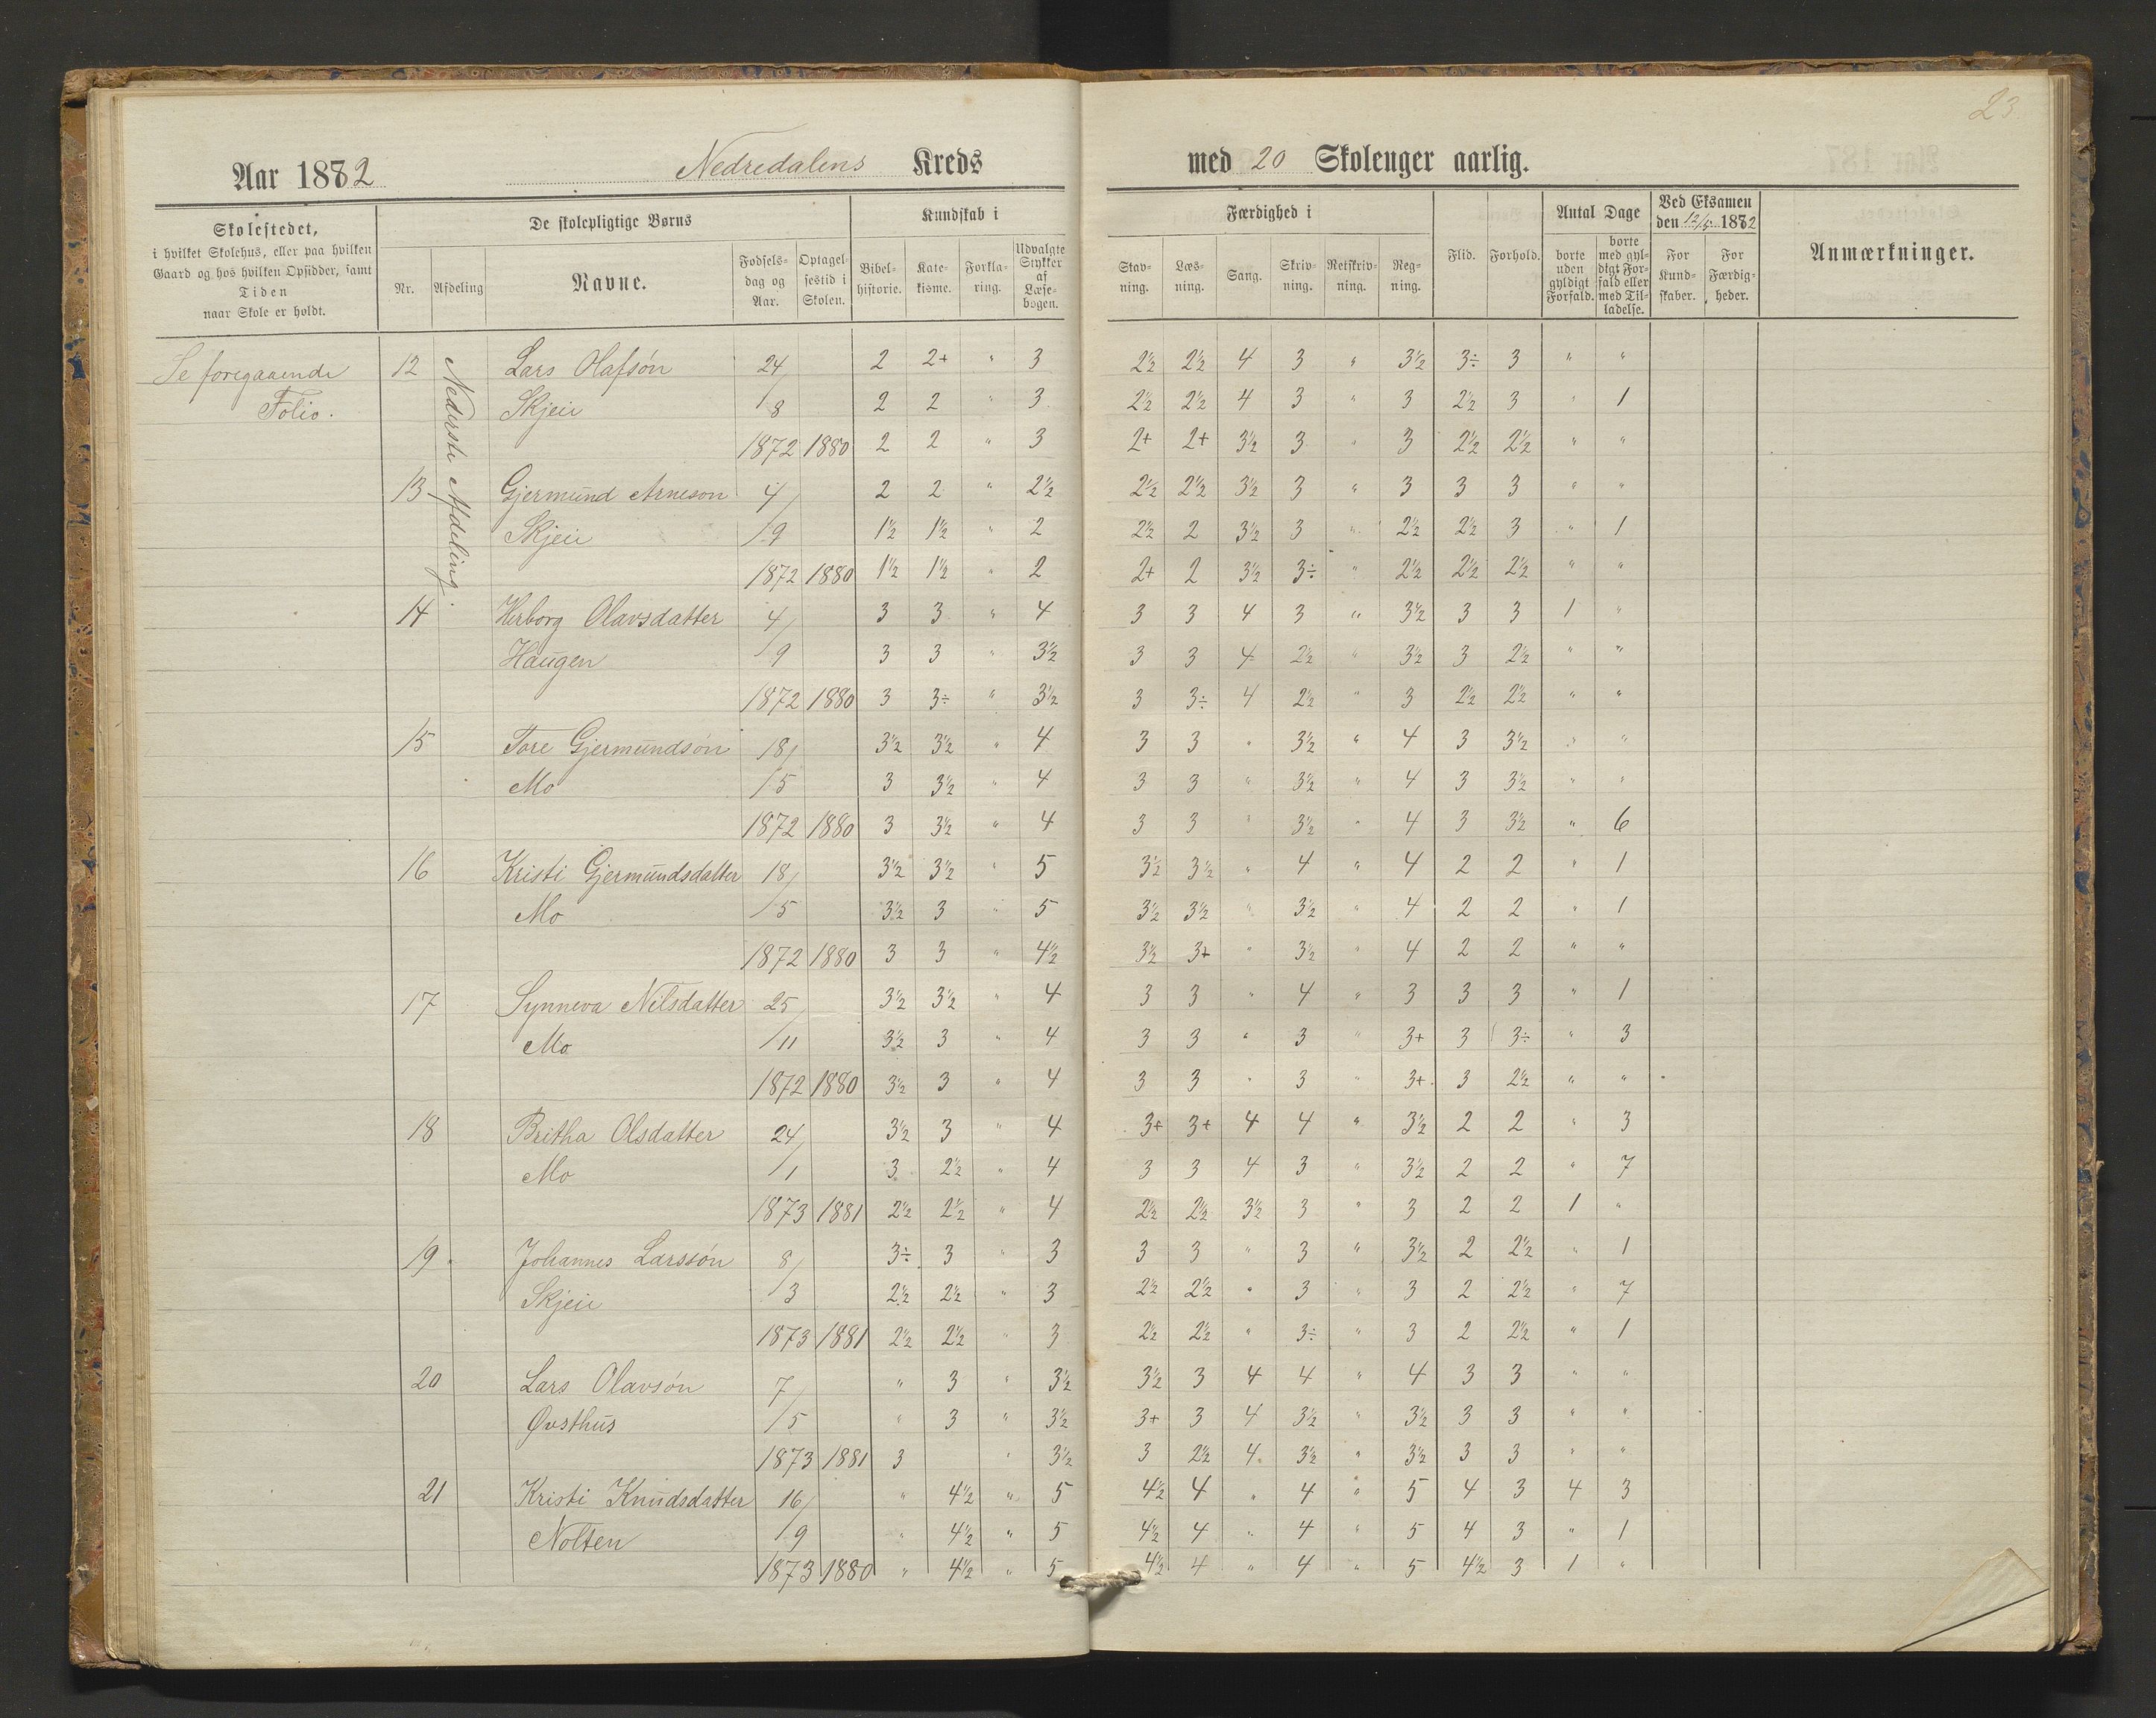 23
Aar 1882 Nedredalens Kreds med 20 Skolenger aarlig.
Skolestedet,
i hvilket Skolehus, eller paa hvilken
Gaard og hos hvilken Opsidder, samt
Tiden
naar Skole er holdt.
De skolepligtige Børns
Nr. Afdeling Navne. Fødsels-dag og Aar. Optagel-sestid i Skolen.
Kundskab i
Bibel-historie. Kate-kisme. Forkla-ring. Udvalgte Stykker af Læse-bogen.
Færdighed i
Stav-ning. Læs-ning. Sang. Skriv-ning. Retskriv-ning. Reg-ning.
Flid. Forhold.
Antal Dage
borte uden gyldigt Forfald. borte med gyl-digt For-fald eller med Til-ladelse.
Ved Eksamen
den 12/5 1882
For Kund-skaber. For Færdig-heder.
Anmærkninger.
Se foregaaende
Folio.
Nederste Afdeling.
12 Lars Olafsón 24/ 2 2+ " 3 2½ 2½ 4 3 " 3½ 3÷ 3 " "
Skjeii /8 2 2 " 3 2½ 2½ 4 3 " 3 2½ 3 " 1
1872 1880 2 2 " 3 2+ 2+ 3½ 3 " 3 2½ 2½ " "
13 Gjermund Arneson 4/ 2 2 " 2½ 2½ 2½ 3½ 3 " 3 3 3 " "
Skjeii /9 1½ 1½ " 2 2½ 2 3½ 3 " 2½ 2½ 3 " 1
1872 1880 1½ 1½ " 2 2+ 2 3½ 3÷ " 2½ 2½ 2½ " "
14 Herborg Olavsdatter 4/ 3 3 " 4 3 3 4 3 " 3½ 3 3 1 "
Haugen /9 3 3 " 3½ 3 3 4 2½ " 3½ 3 2½ " "
1872 1880 3 3÷ " 3½ 3 3÷ 4 2½ " 3 2½ 2½ " "
15 Tore Gjermundsón 18/ 3½ 3½ " 4 3 3 " 3½ " 4 3 3½ " "
Mo /5 3 3½ " 4 3 3 " 3½ " 4 3 3½ " "
1872 1880 3 3½ " 4 3 3 " 3½ " 4 3 3½ " 6
16 Kristi Gjermundsdatter 18/ 3½ 3½ " 5 3½ 3½ " 4 " 4 2 2 " 1
Mo /5 3½ 3 " 5 3½ 3½ " 3½ " 4 2 2 " 1
1872 1880 3 3 " 4½ 3½ 3+ " 3½ " 4 2 2 " "
17 Synneva Nilsdatter 25/ 3½ 3½ " 4 3 3 " 4 " 3 3 3 " 1
Mo /11 3½ 3 " 4 3 3 " 3 " 3+ 3 3÷ " 3
1872 1880 3½ 3 " 4 3 3 " 3 " 3+ 3 2½ " "
18 Britha Olsdatter 24/ 3½ 3 " 4 3+ 3+ 4 4 " 3½ 2 2 " 3
Mo /1 3 2½ " 4 3 3 4 3 " 3½ 2 2 " 7
1873 1881 2½ 2½ " 4 2½ 2½ 3½ 3 " 3 2 2 1 "
19 Johannes Larssón 8/ 3÷ 3 " 3 3 3 " 3 " 3½ 2 2½ " 1
Skjeii /3 2½ 2½ " 3 2½ 2½ " 3 " 3 2 2½ " 7
1873 1881 2½ 2½ " 3 2½ 2½ " 3÷ " 3 2 2½ " 1
20 Lars Olavsón 7/ " 3 " 3½ 3½ 3 4 4 " 4 3 3 " "
Øvsthus /5 " 3 " 3½ 3+ 3 4 3½ " 3½ 3 3 " "
1873 1881 3 " 3½ 3 2½ 4 3½ " 3½ 3 3 " "
21 Kristi Knudsdatter 16/ " 4½ " 5 4½ 4 " 4 " 5 4 3 4 3
Nolten /9 " 4½ " 5 4½ 4 " 4 " 5 4 3 " 1
1873 1880 " 4½ " 5 4½ 4 " 4 " 5 4½ 3 1 "